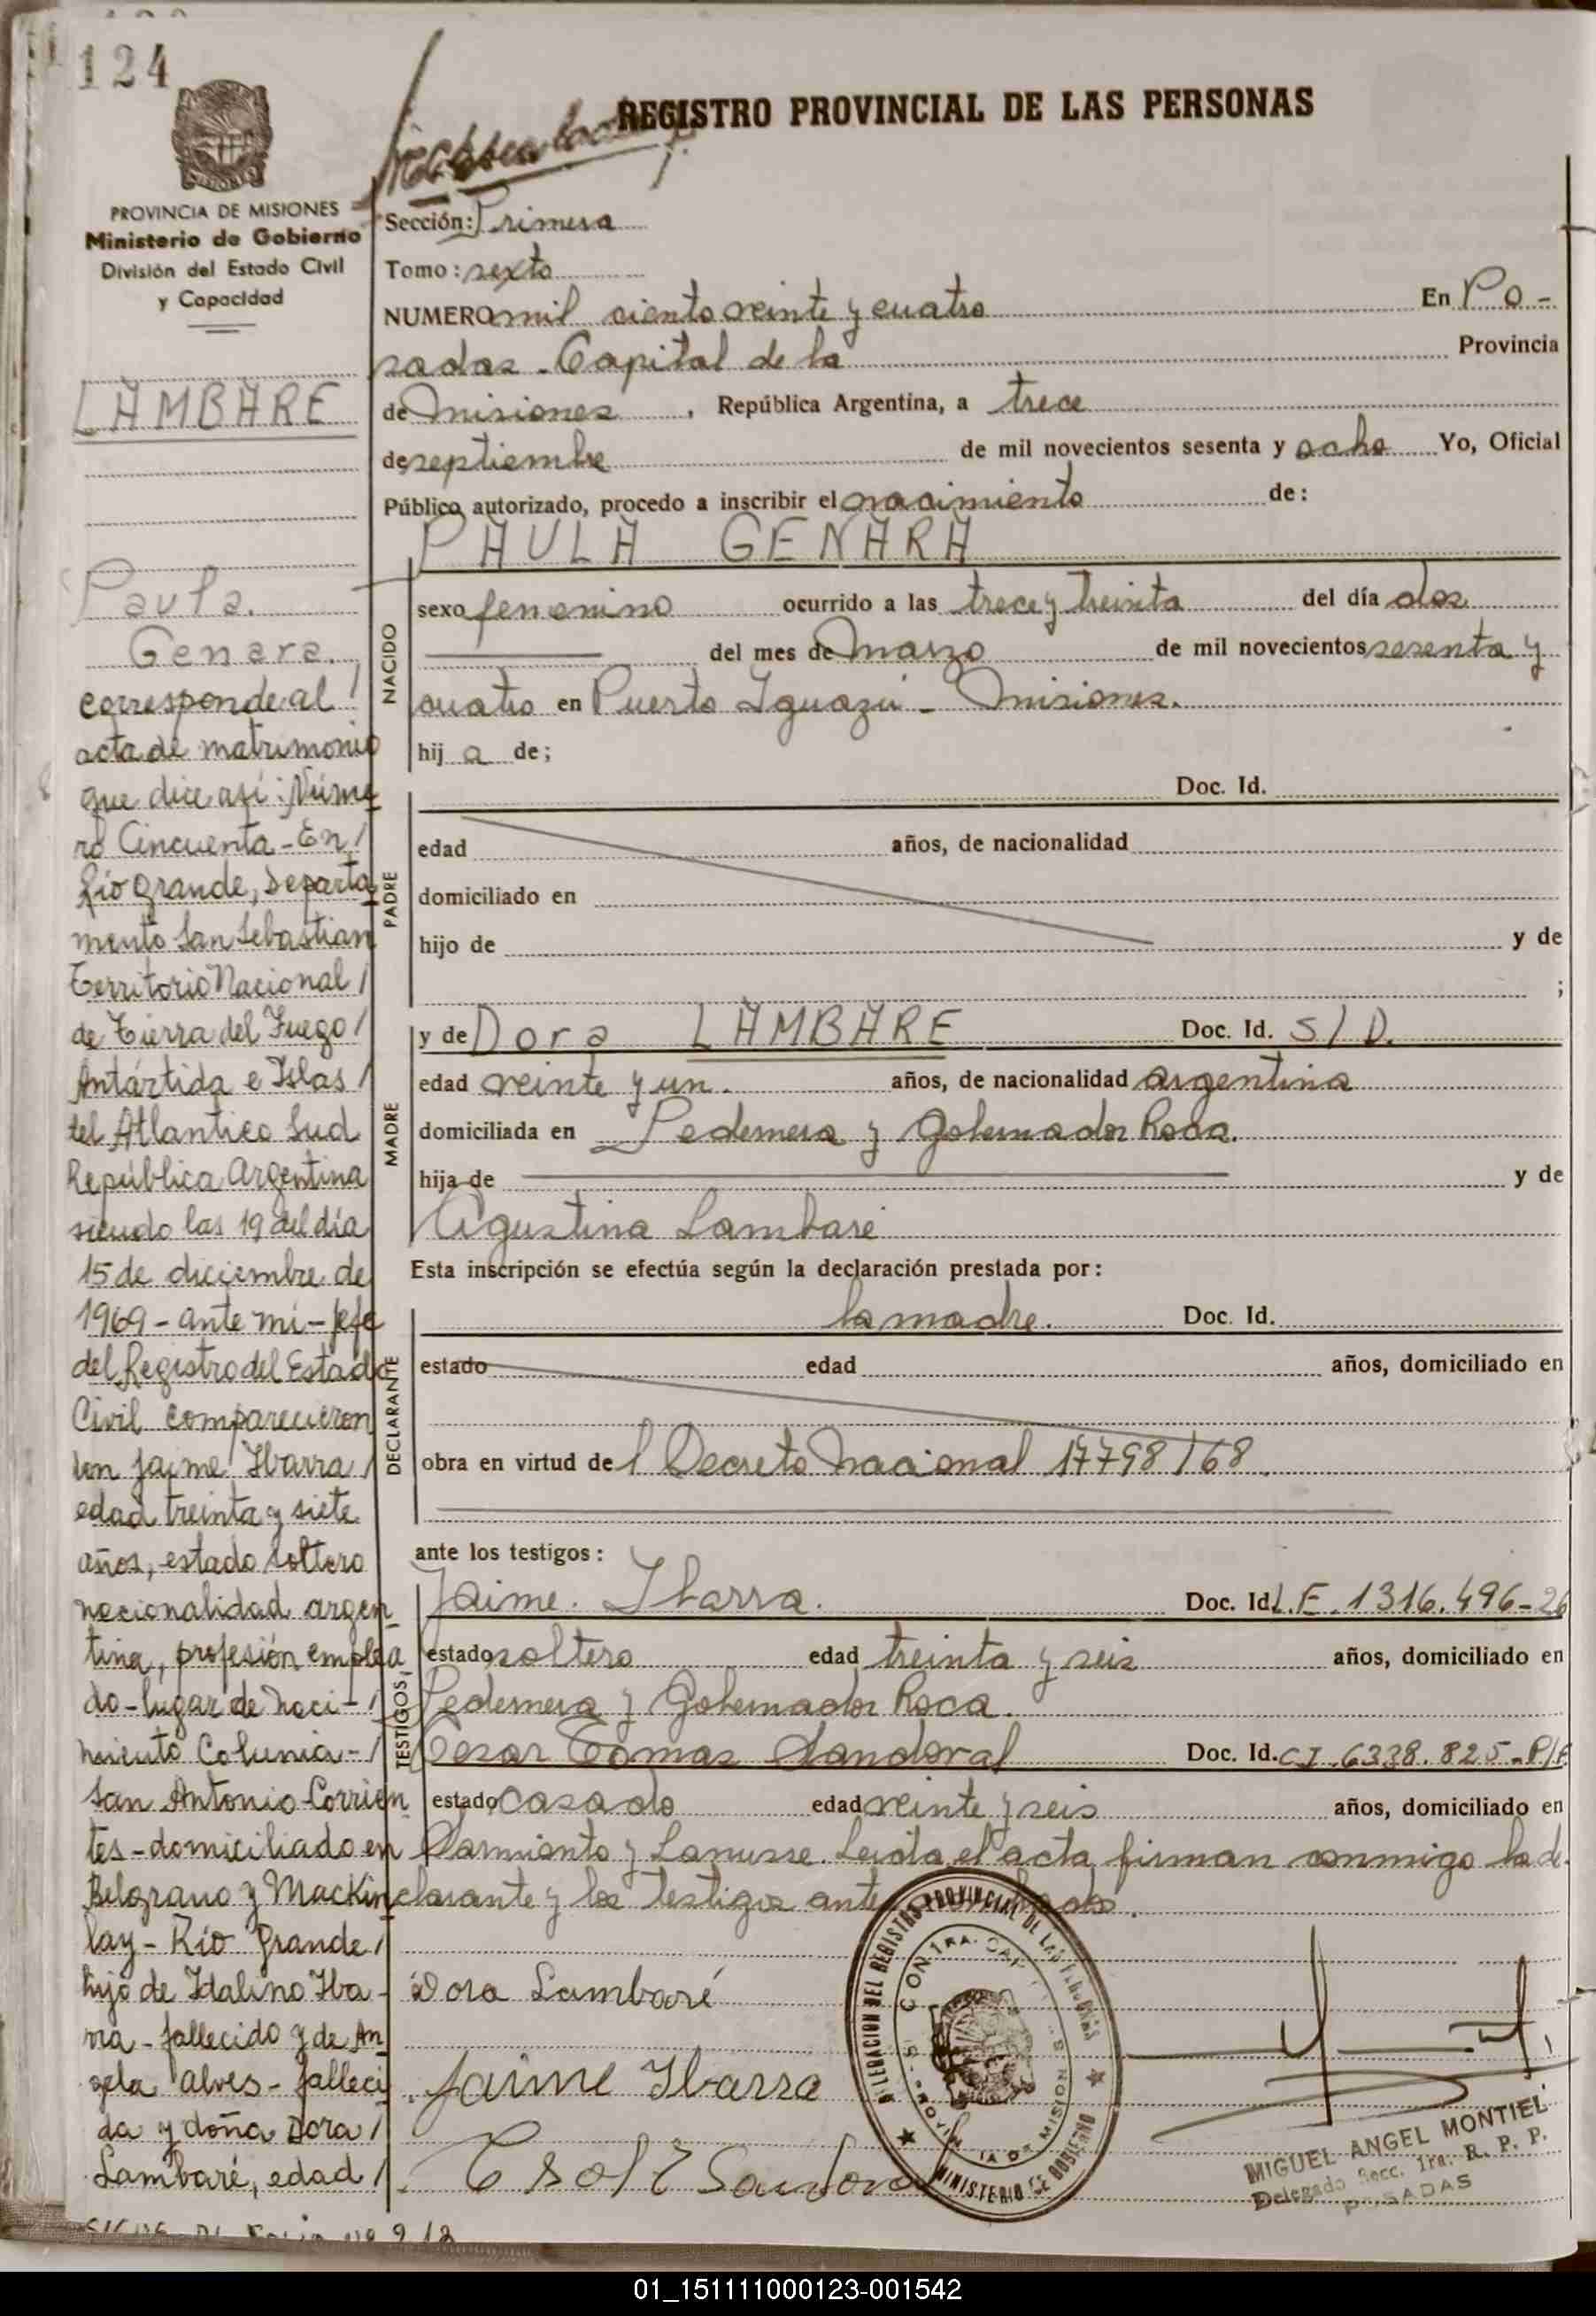 124
REGISTRO PROVINCIAL DE LAS PERSONAS
PROVINCIA DE MISIONES
Ministerio de Gobierno
División del Estado Civil
y Capacidad
LAMBARE
Paula.
Genara.
corresponde al /
acta de matrimonio
que dice así: Núme
ro Cincuenta - En /
Río Grande, Departa
mento San Sebastian
Territorio Nacional /
de Tierra del Fuego /
Antártida e Islas /
del Atlantico Sud
República Argentina
siendo las 19 del día
15 de diciembre de
1969 - ante mi - Jefe
del Registro del Estado
Civil comparecieron
Don Jaime Ibarra /
edad treinta y siete
años, estado soltero
nacionalidad argen
tina, profesión emplea
do - lugar de naci - /
miento Colonia - /
San Antonio - Corrien
tes - domiciliado en
Belgrano y Mackin
lay - Río Grande /
hijo de Idalino Iba -
rra - fallecido y de An
gela Alves - falleci
da y doña Dora /
Lambaré, edad /
Sección: Primera
Tomo: sexto
NUMERO mil ciento veinte y cuatro En Po -
sadas - Capital de la Provincia
de Misiones, República Argentina, a trece
de septiembre de mil novecientos sesenta y ocho Yo, Oficial
Público autorizado, procedo a inscribir el nacimiento de:
PAULA GENARA
NACIDO
sexo femenino ocurrido a las trece y treinta del día dos
del mes de Marzo de mil novecientos sesenta y
cuatro en Puerto Iguazú - Misiones.
hij a de;
PADRE
Doc. Id.
edad años, de nacionalidad
domiciliado en
hijo de y de
;
MADRE
y de Dora LAMBARE Doc. Id. S/D.
edad veinte y un. años, de nacionalidad argentina
domiciliada en Pedernera y Gobernador Roca.
hija de y de
Agustina Lambaré
Esta inscripción se efectúa según la declaración prestada por:
DECLARANTE
la madre. Doc. Id.
estado edad años, domiciliado en
obra en virtud de l Decreto Nacional 17798/68.
ante los testigos:
TESTIGOS
Jaime. Ibarra. Doc. Id. L.E. 1316.496-26
estado soltero edad treinta y seis años, domiciliado en
Pedernera y Gobernador Roca.
Cesar Tomas Sandoval Doc. Id. CI.6338.825-P/F
estado casado edad veinte y seis años, domiciliado en
Sarmiento y Lanusse. Leida el acta firman conmigo la de
clarante y los testigos
Dora Lambaré
Jaime Ibarra
MINISTERIO DE GOBIERNO
MIGUEL ANGEL MONTIEL
Delegado Secc. 1ra. R. P. P.
POSADAS
01_151111000123-001542